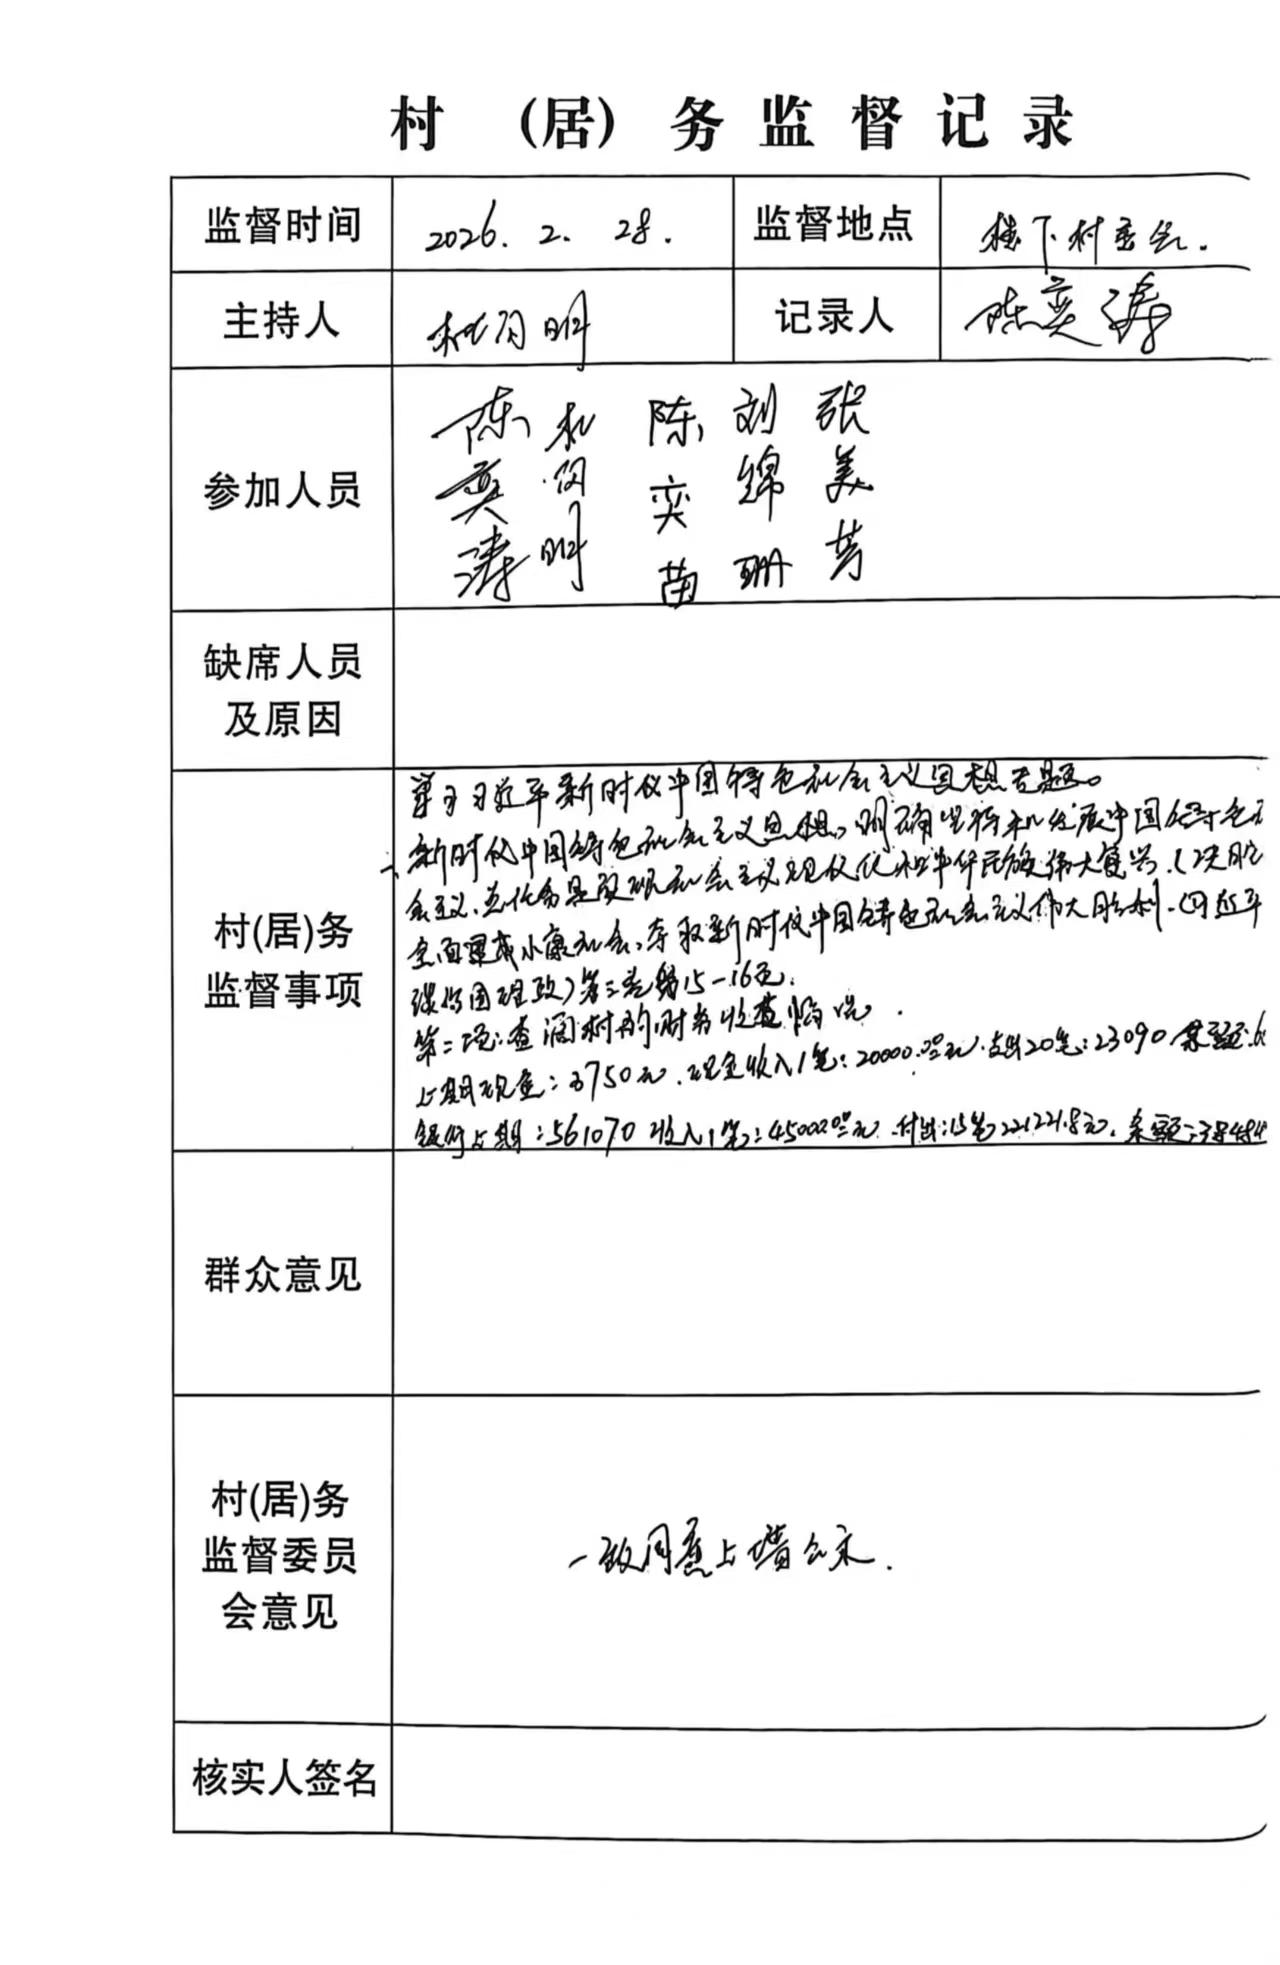 村 (居) 务监督记录
监督时间 2026. 2. 28. 监督地点 楼下村委会.
主持人 明 记录人 陈奕涛
参加人员 陈奕涛 明 陈奕苗 刘锦珊 张美芳
缺席人员
及原因
学习习近平新时代中国特色社会主义思想专题。
新时代中国特色社会主义思想,明确坚持和发展中国特色社
会主义,总任务是实现社会主义现代化和中华民族伟大复兴.(决胜
全面建成小康社会,夺取新时代中国特色社会主义伟大胜利.(习近平
谈治国理政)第三卷第15-16页.
第二项:查阅村的财务收查情况.
上期现金:3750元.现金收入1笔:20000.00元.支出20笔:23090 余额:
银行上期:561070 收入1笔:45000.00元.付出:15笔221221.8元.余额:38484
村(居)务
监督事项
群众意见
村(居)务
监督委员
会意见
一致同意上墙公示.
核实人签名